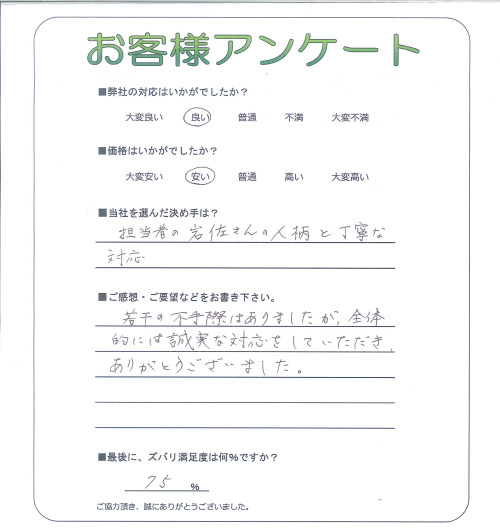 お客様アンケート
■弊社の対応はいかがでしたか?
大変良い 良い 普通 不満 大変不満
■価格はいかがでしたか?
大変安い 安い 普通 高い 大変高い
■当社を選んだ決め手は?
担当者の岩佐さんの人柄と丁寧な
対応
■ご感想・ご要望などをお書き下さい。
若干の不手際はありましたが、全体
的には誠実な対応をしていただき、
ありがとうございました。
■最後に、ズバリ満足度は何%ですか?
75 %
ご協力頂き、誠にありがとうございました。